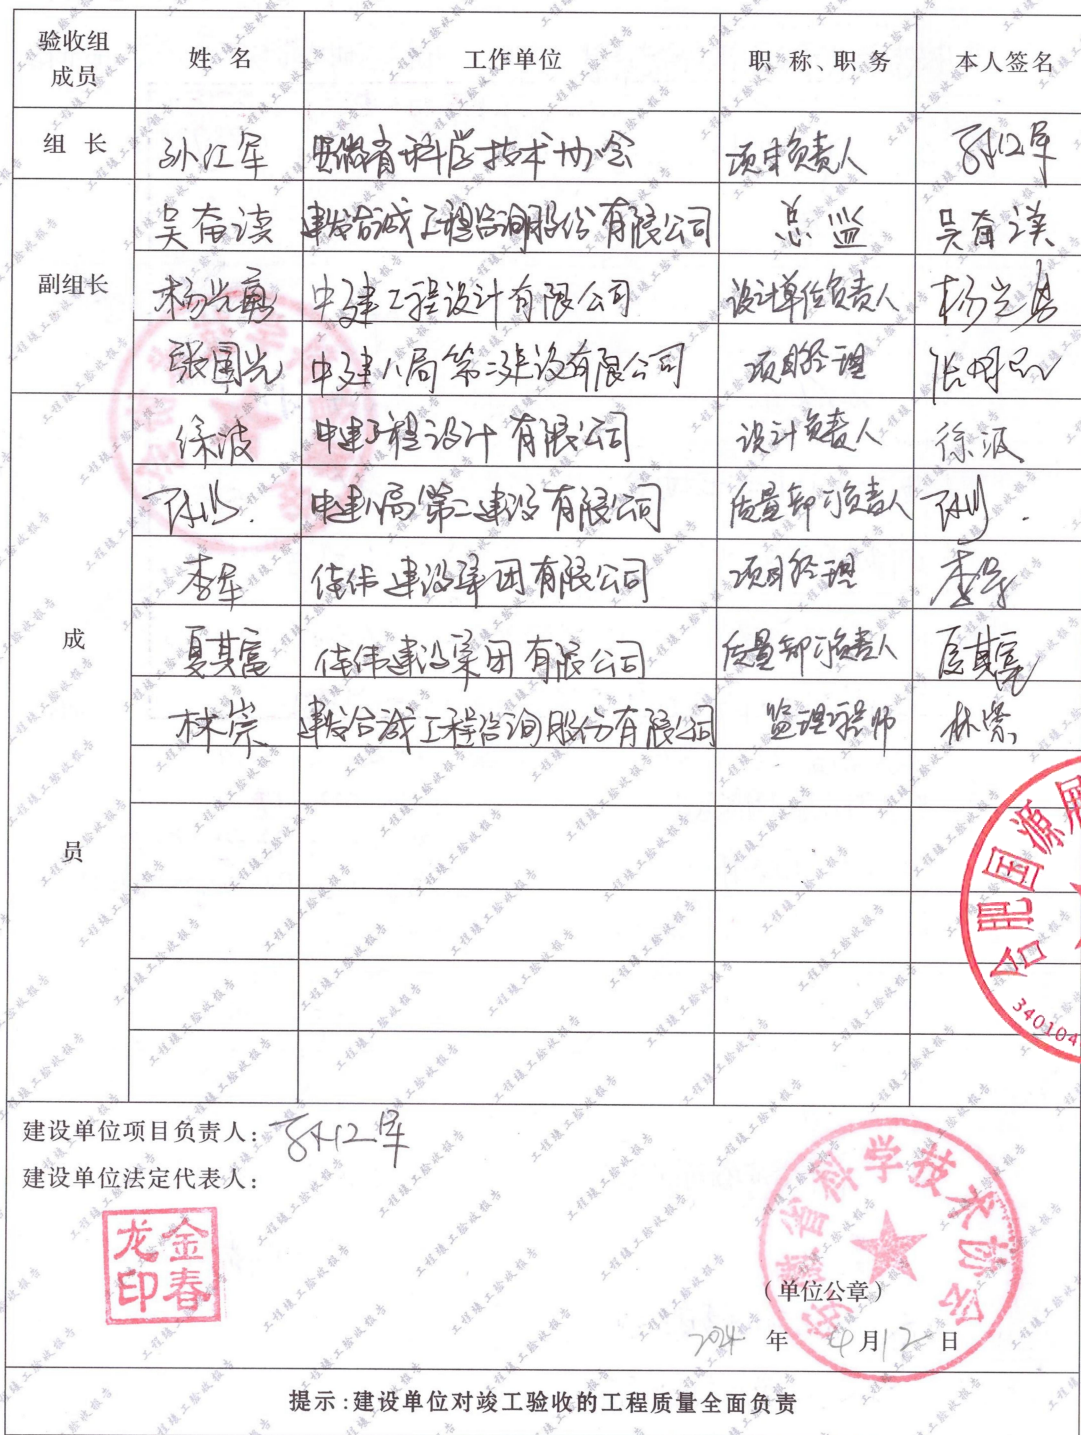 验收组成员 姓名 工作单位 职称、职务 本人签名
组长 孙江军 安徽省科学技术协会 项目负责人 孙江军
副组长
吴奋淡 建发合诚工程咨询股份有限公司 总监 吴奋淡
杨光 中建工程设计有限公司 设计单位负责人 杨光
张国光 中建八局第二建设有限公司 项目经理 张国光
成员
徐波 中建工程设计有限公司 设计负责人 徐波
中建八局第二建设有限公司 质量部门负责人
李军 佳伟建设集团有限公司 项目经理 李军
夏其富 佳伟建设集团有限公司 质量部门负责人 夏其富
林崇 建发合诚工程咨询股份有限公司 监理工程师 林崇
合肥国源展
340104
建设单位项目负责人: 孙江军
建设单位法定代表人:
金春龙印
安徽省科学技术协会
(单位公章)
2024 年 4 月 12 日
提示:建设单位对竣工验收的工程质量全面负责
工程竣工验收报告